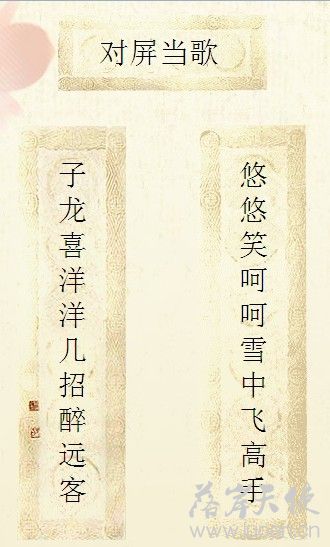 对屏当歌
悠悠笑呵呵雪中飞高手
子龙喜洋洋几招醉远客
落笔天使